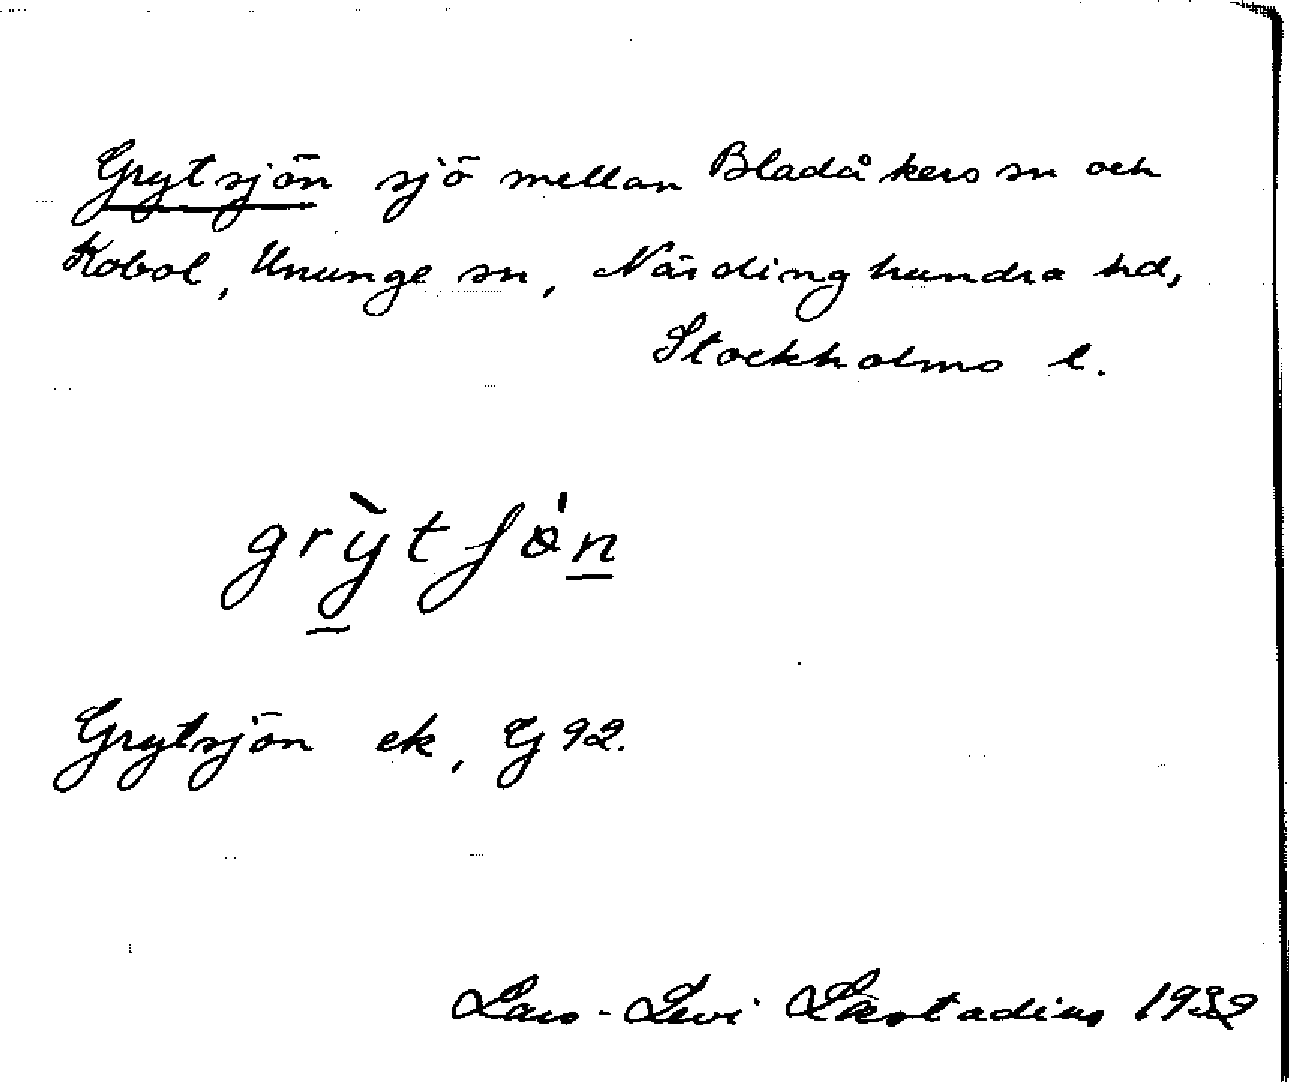 Grytsjön sjö mellan Bladåkers sn och
Kobol, Ununge sn, Närdinghundra hd,
Stockholms l.
grỳtʃö́n
Grytsjön ek, G 92.
Lars-Levi Læstadius 1932